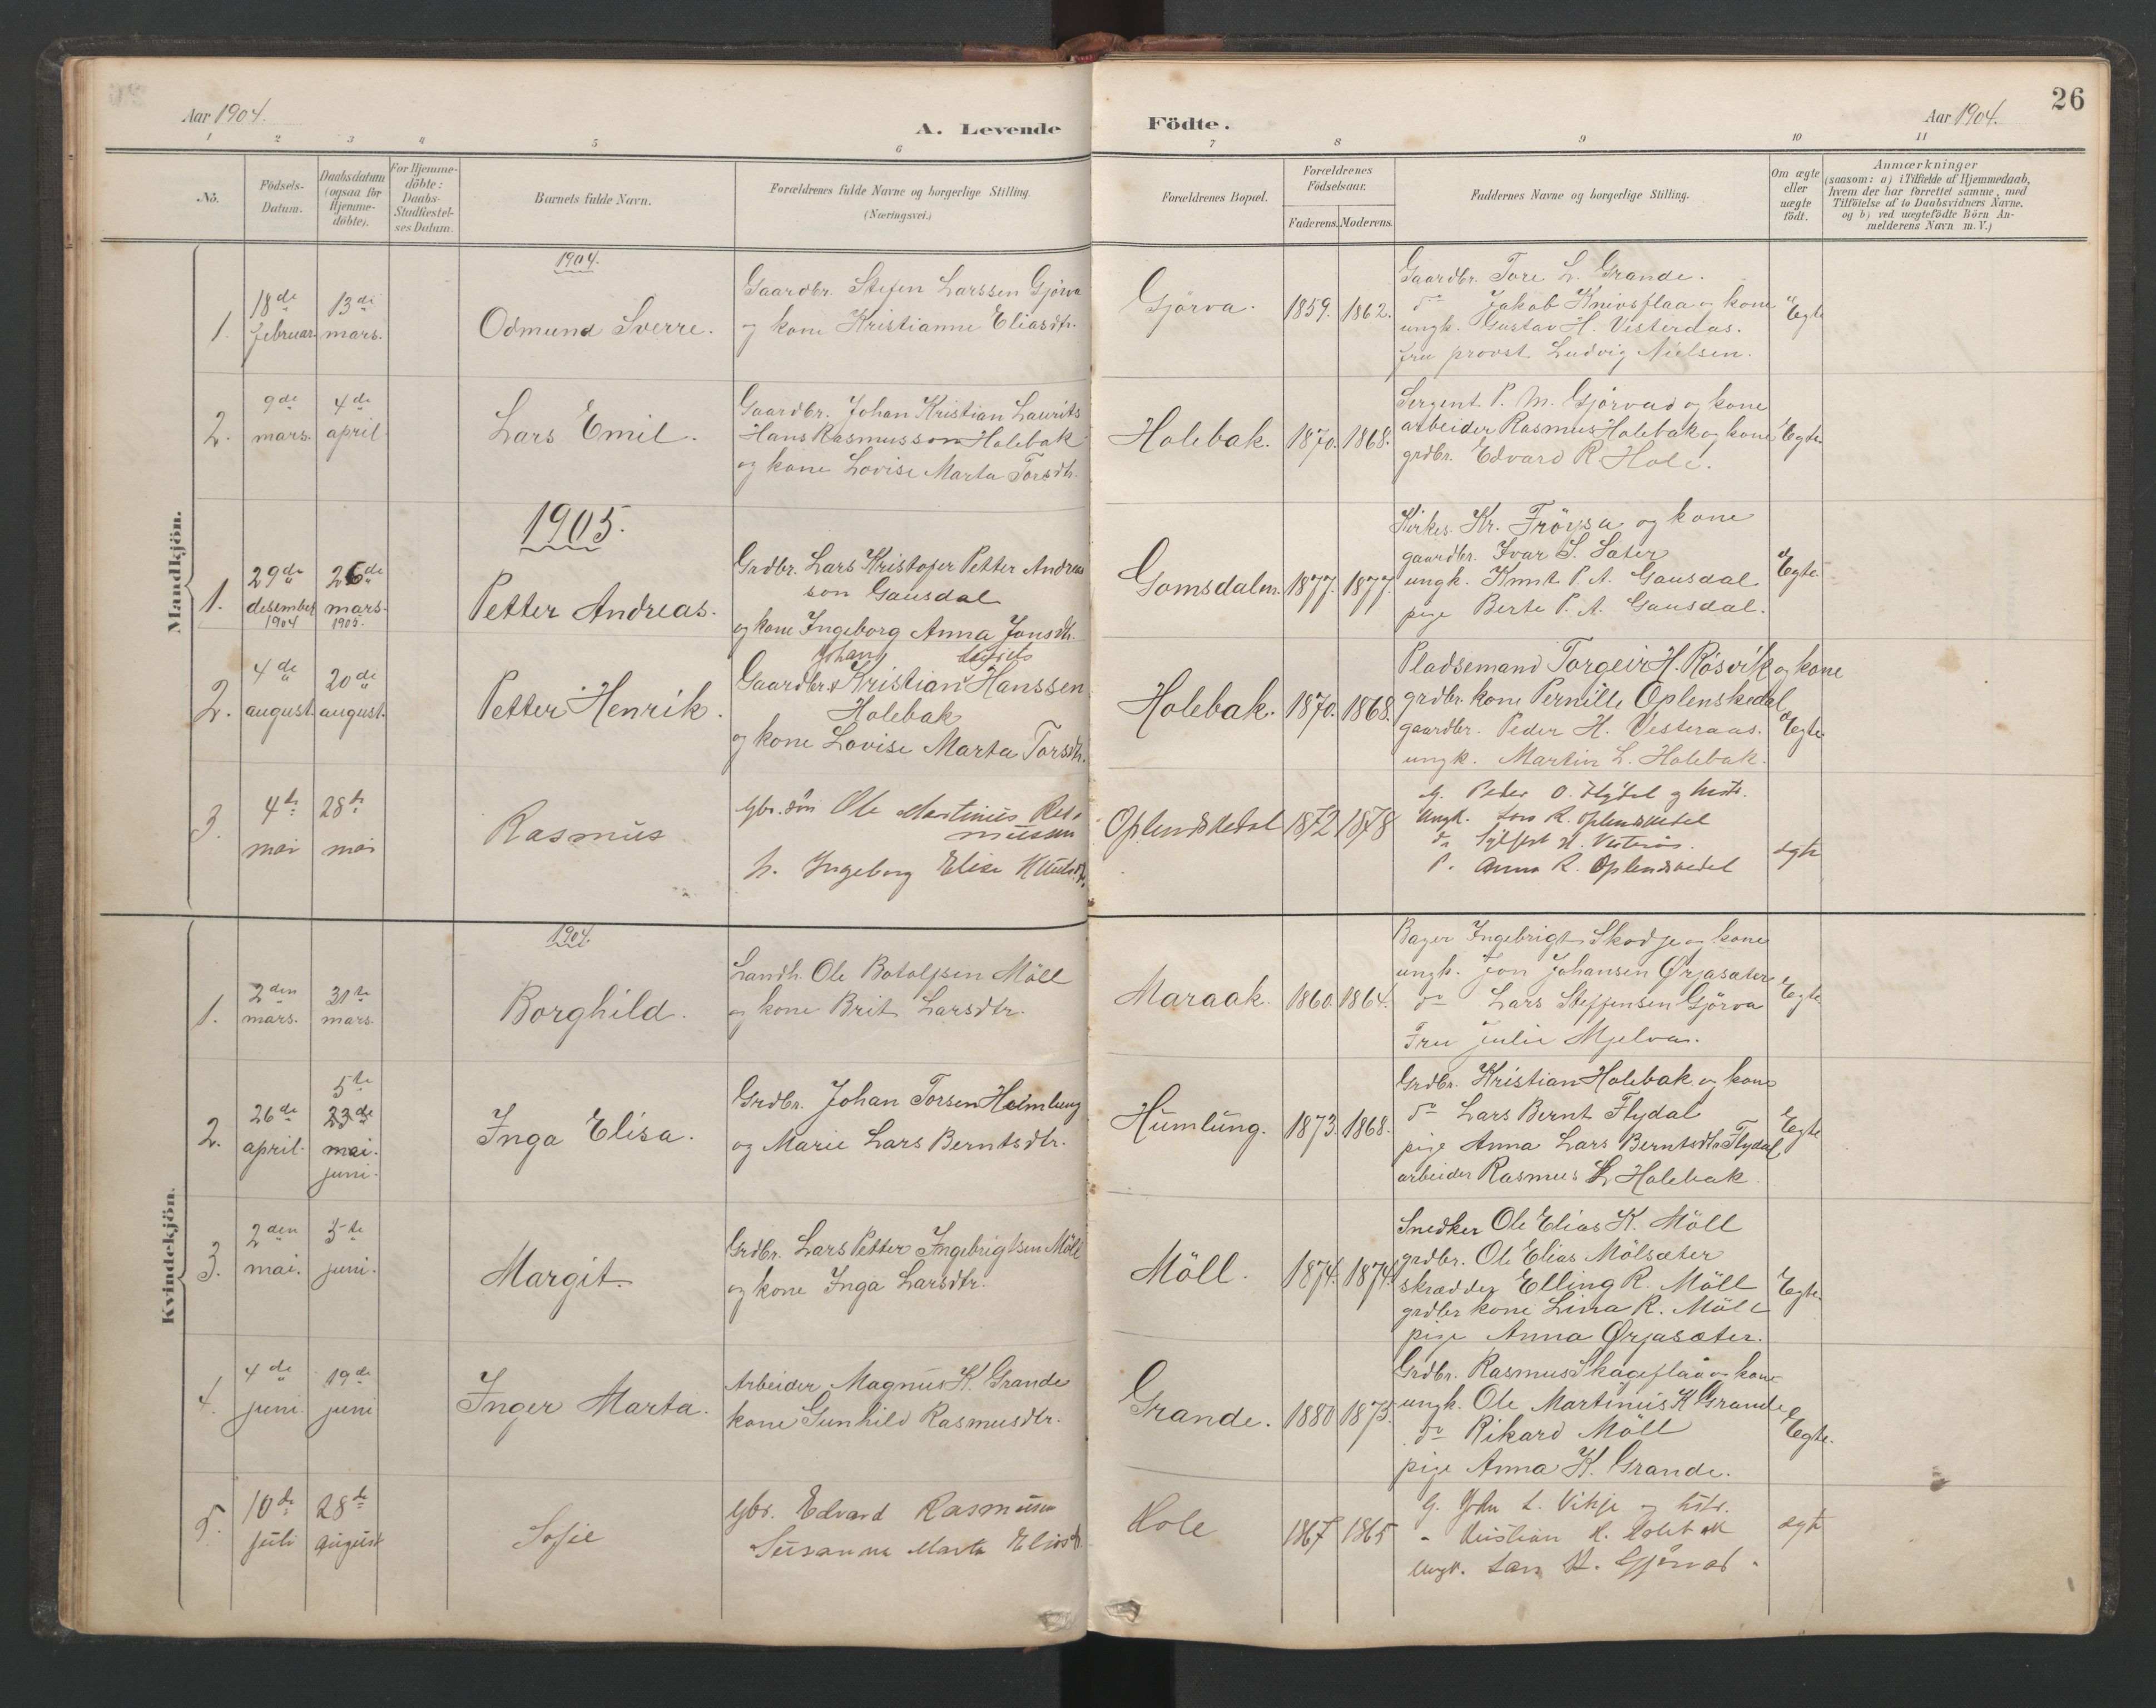 26
Aar 1904.
A. Levende Födte.
Aar 1904.
1 2 3 4 5 6 7 8 9 10 11
No.
Födsels-
Datum.
Daabsdatum
(ogsaa for
Hjemme-
döbte).
For Hjemme-
döbte:
Daabs-
Stadfæstel-
ses Datum.
Barnets fulde Navn.
Forældrenes fulde Navne og borgerlige Stilling.
(Næringsvei.)
Forældrenes Bopæl.
Forældrenes
Födselsaar.
Faderens. Moderens.
Faddernes Navne og borgerlige Stilling.
Om ægte
eller
uægte
födt.
Anmærkninger
(saasom: a) i Tilfælde af Hjemmedaab,
hvem der har forrettet samme, med
Tilföielse af to Daabsvidners Navne.
og b) ved uægtefödte Börn An-
melderens Navn m. V.)
Mandkjön.
1904.
1.
18de
februar
13de
mars.
Odmund Sverre.
Gaardbr. Stefen Larssen Gjörva
og kone Kristianne Eliasdtr.
Gjörva.
1859. 1862.
Gaardbr. Tore L. Grande.
do Jakob Knivsflaa og kone
ungk. Gustav H. Vesterdas.
fru provst Ludvig Nielsen.
Egte
2.
9de
mars.
4de
april
Lars Emil.
Gaardbr. Johan Kristian Laurits
Hans Rasmusson Holebak
og kone Lovise Marta Torsdtr.
Holebak.
1870. 1868.
Sergent P. M. Gjörvad og kone
arbeider Rasmus Holebak og kone
grdbr. Edvard R. Hole.
Egte
1905.
1.
29de
desember
1904
26de
mars.
1905.
Petter Andreas.
Grdbr. Lars Kristofer Petter Andrea
son Gausdal
og kone Ingeborg Anna Jonsdtr.
Gomsdalen.
1877. 1877.
Kirkes. Kr. Fröysa og kone
gaardbr. Ivar S. Sæter
ungk. Knut P. A. Gausdal
pige Berte P. A. Gausdal.
Egte.
2.
4de
august.
20de
august.
Petter Henrik.
Johan Laurits
Gaardbr. Kristian Hanssen
Holebak
og kone Lovise Marta Torsdtr.
Holebak.
1870. 1868.
Pladsemand Torgeir H. Røsvik og kone
grdbr. kone Pernille Oplenskedal
gaardbr. Peder H. Vesteraas.
ungk. Martin L. Holebak.
Egte.
3.
4de
mai
28de
mai
Rasmus
Gbr. sön Ole Martinus Ras-
mussen
h. Ingeborg Elise Knutsdtr.
Oplendskedal
1872 1878
G. Peder O. Flydal og hustr.
Ungk. Lars R. Oplendskedal
do Sylfest H. Vesterås
P. Anna R. Oplendskedal
egte
Kvindekjön.
1904.
1.
2den
mars.
31te
mars.
Borghild.
Landh. Ole Botolfsen Möll
og kone Brit Larsdtr.
Maraak.
1860. 1864.
Bager Ingebrigt Skodje og kone
ungk. Jon Johansen Ørjasæter
do Lars Steffensen Gjörva
Fru Julie Mjelva.
Egte
2.
26de
april.
5te
23de
mai.
juni.
Inga Elisa.
Grdbr. Johan Torsen Homlung
og Marie Lars Berntsdtr.
Humlung.
1873. 1868.
Grdbr. Kristian Holebak og kone
do Lars Bernt Flydal
pige Anna Lars Berntsdtr Flydal
arbeider Rasmus L Holebak
Egte
3.
2den
mai.
5te
juni.
Margit.
Grdbr. Lars Petter Ingebrigtsen Möll
og kone Inga Larsdtr.
Möll.
1874. 1874.
Snedker Ole Elias K. Möll
grdbr. Ole Elias Mölsæter
skrædder Elling R. Möll
grdbr kone Lina R. Möll
pige Anna Ørjasæter.
Egte.
4.
4de
juni.
19de
juni
Inger Marta.
Arbeider Magnus K. Grande
kone Gunhild Rasmusdtr.
Grande.
1880 1875.
Grdbr. Rasmus Skageflaa og kone
ungk. Ole Martinus K Grande
do Rikard Möll
pige Anna K. Grande.
Egte.
5.
10de
juli
28de
august
Sofie
Gbr. Edvard Rasmussen
Susanne Marta Eliasdtr.
Hole
1867 1865
G. John L. Vikje og hstr.
" Kristian H. Holebak
Ungk. Lars H. Gjörvad
egte